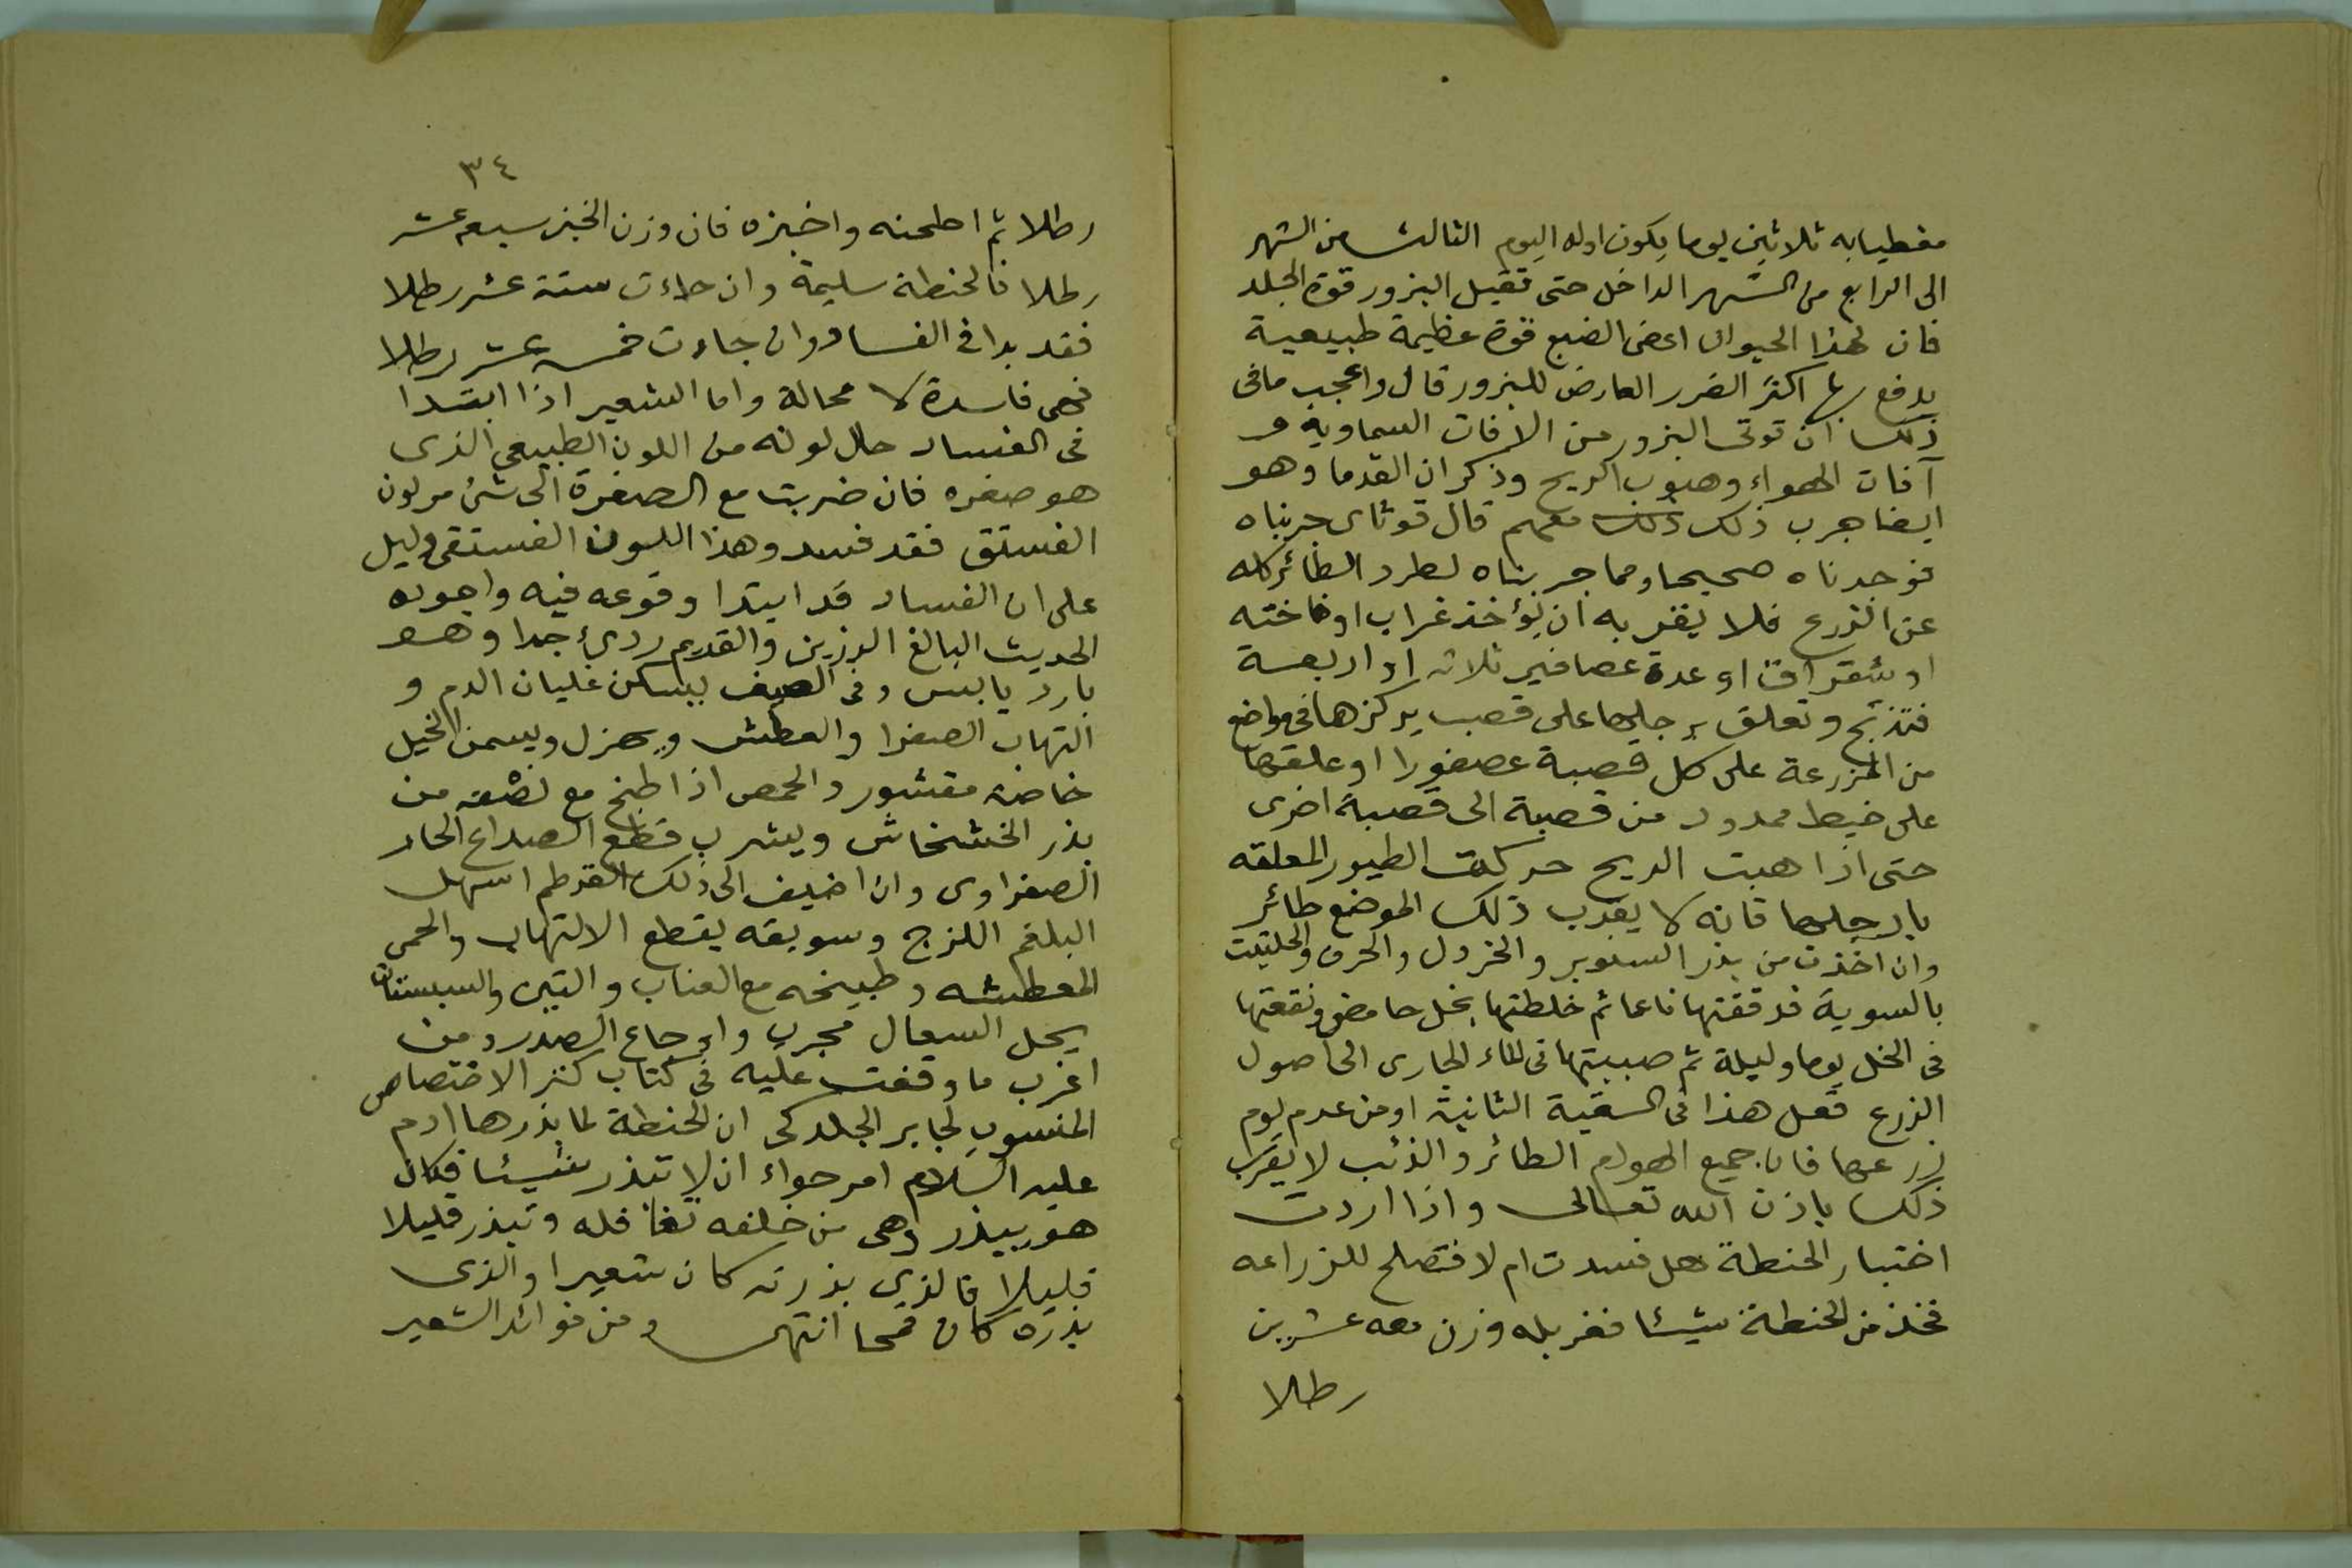 مغطيا به ثلاثين يوما يكون اوله اليوم الثالث من الشهر
الى الرابع من الشهر الداخل حتى تقبل البزور قوة الجلد
فان لهذا الحيوان اعنى الضبع قوة عظيمة طبيعية
يدفع بها اكثر الضرر العارض للبزور قال واعجب ما فى
ذلك ان توقى البزور من الافات السماوية و
آفات الهواء وهبوب الريح وذكر ان القدما وهو
ايضا جرب ذلك معهم قال قوثاى جربناه
فوجدناه صحيحا ومما جربناه لطرد الطائر كله
عن الزرع فلا يقربه ان يؤخذ غراب او فاخته
او شقراق او عدة عصافير ثلاثه او اربعة
فتذبح وتعلق برجليها على قصب يركزها فى مواضع
من المزرعة على كل قصبة عصفورا او علقها
على خيط ممدود من قصبة الى قصبة اخرى
حتى اذا هبت الريح حركت الطيور المعلقه
بارجلها فانه لا يقرب ذلك الموضع طائر
وان اخذت من بذر السنوبر والخردل والحرف والحلتيت
بالسوية فدققتها ناعما ثم خلطتها بخل حامض ونقعتها
فى الخل يوما وليلة ثم صببتها فى الماء الجارى الى اصول
الزرع تفعل هذا فى السقية الثانية او من عدم يوم
زرعها فان جميع الهوام الطائر والذئب لا يقرب
ذلك باذن الله تعالى واذا اردت
اختبار الحنطة هل فسدت ام لا فتصلح للزراعه
فخذ من الحنطة شيئا فغربله وزن معه عشرين
رطلا
٣٤
رطلا ثم اطحنه واخبزه فان وزن الخبز سبعه عشر
رطلا فالحنطة سليمة وان جاءت ستة عشر رطلا
فقد بدا فى الفساد وان جاءت خمسه عشر رطلا
فهى فاسدة لا محالة واما الشعير اذا ابتدا
فى الفساد حال لونه من اللون الطبيعي الذى
هو صفره فان ضربت مع الصفرة الى شئ من لون
الفستق فقد فسد وهذا اللون الفستقى دليل
على ان الفساد قد ابتدا وقوعه فيه واجوده
الحديث البالغ الرزين والقديم ردئ جدا وهو
بارد يابس وفى الصيف يسكن غليان الدم و
التهاب الصفرا والعطش ويهزل ويسمن الخيل
خاصة مقشور والحمص اذا طبخ مع نصفه من
بذر الخشخاش ويشرب قطع الصداع الحار
الصفراوى وان اضيف الى ذلك القرطم اسهل
البلغم اللزج وسويقه يقطع الالتهاب والحمى
المعطشه وطبيخه مع العناب والتين والسبستان
يحل السعال مجرب واوجاع الصدر ومن
اغرب ما وقفت عليه فى كتاب كنز الاختصاص
المنسوب لجابر الجلدكى ان الحنطة لما بذرها ادم
عليه السلام امر حواء ان لا تبذر شيئا فكان
هو يبذر وهى من خلفه تغافله وتبذر قليلا
قليلا فالذى بذرته كان شعيرا والذى
بذره كان قمحا انتهى ومن فوائد الشعير